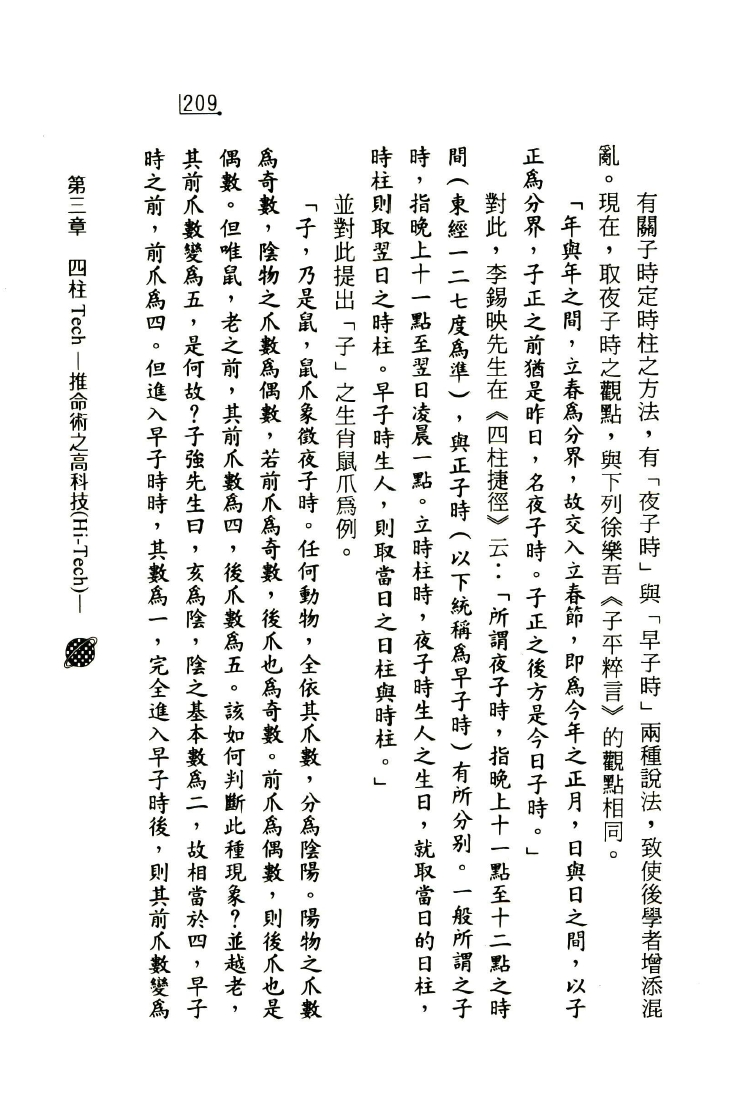 有關子時定時柱之方法，有「夜子時」與「早子時」兩種說法，致使後學者增添混
亂。現在，取夜子時之觀點，與下列徐樂吾《子平粹言》的觀點相同。
「年與年之間，立春爲分界，故交入立春節，即爲今年之正月，日與日之間，以子
正爲分界，子正之前猶是昨日，名夜子時。子正之後方是今日子時。」
對此，李錫映先生在《四柱捷徑》云：「所謂夜子時，指晚上十一點至十二點之時
間（東經一二七度爲準），與正子時（以下統稱爲早子時）有所分别。一般所謂之子
時，指晚上十一點至翌日凌晨一點。立時柱時，夜子時生人之生日，就取當日的日柱，
時柱則取翌日之時柱。早子時生人，則取當日之日柱與時柱。」
並對此提出「子」之生肖鼠爪爲例。
「子，乃是鼠，鼠爪象徵夜子時。任何動物，全依其爪數，分爲陰陽。陽物之爪數
爲奇數，陰物之爪數爲偶數，若前爪爲奇數，後爪也爲奇數。前爪爲偶數，則後爪也是
偶數。但唯鼠，老之前，其前爪數爲四，後爪數爲五。該如何判斷此種現象？並越老，
其前爪數變爲五，是何故？子強先生曰，亥爲陰，陰之基本數爲二，故相當於四，早子
時之前，前爪爲四。但進入早子時時，其數爲一，完全進入早子時後，則其前爪數變爲
第三章　四柱 Tech —推命術之高科技(Hi-Tech)—
209